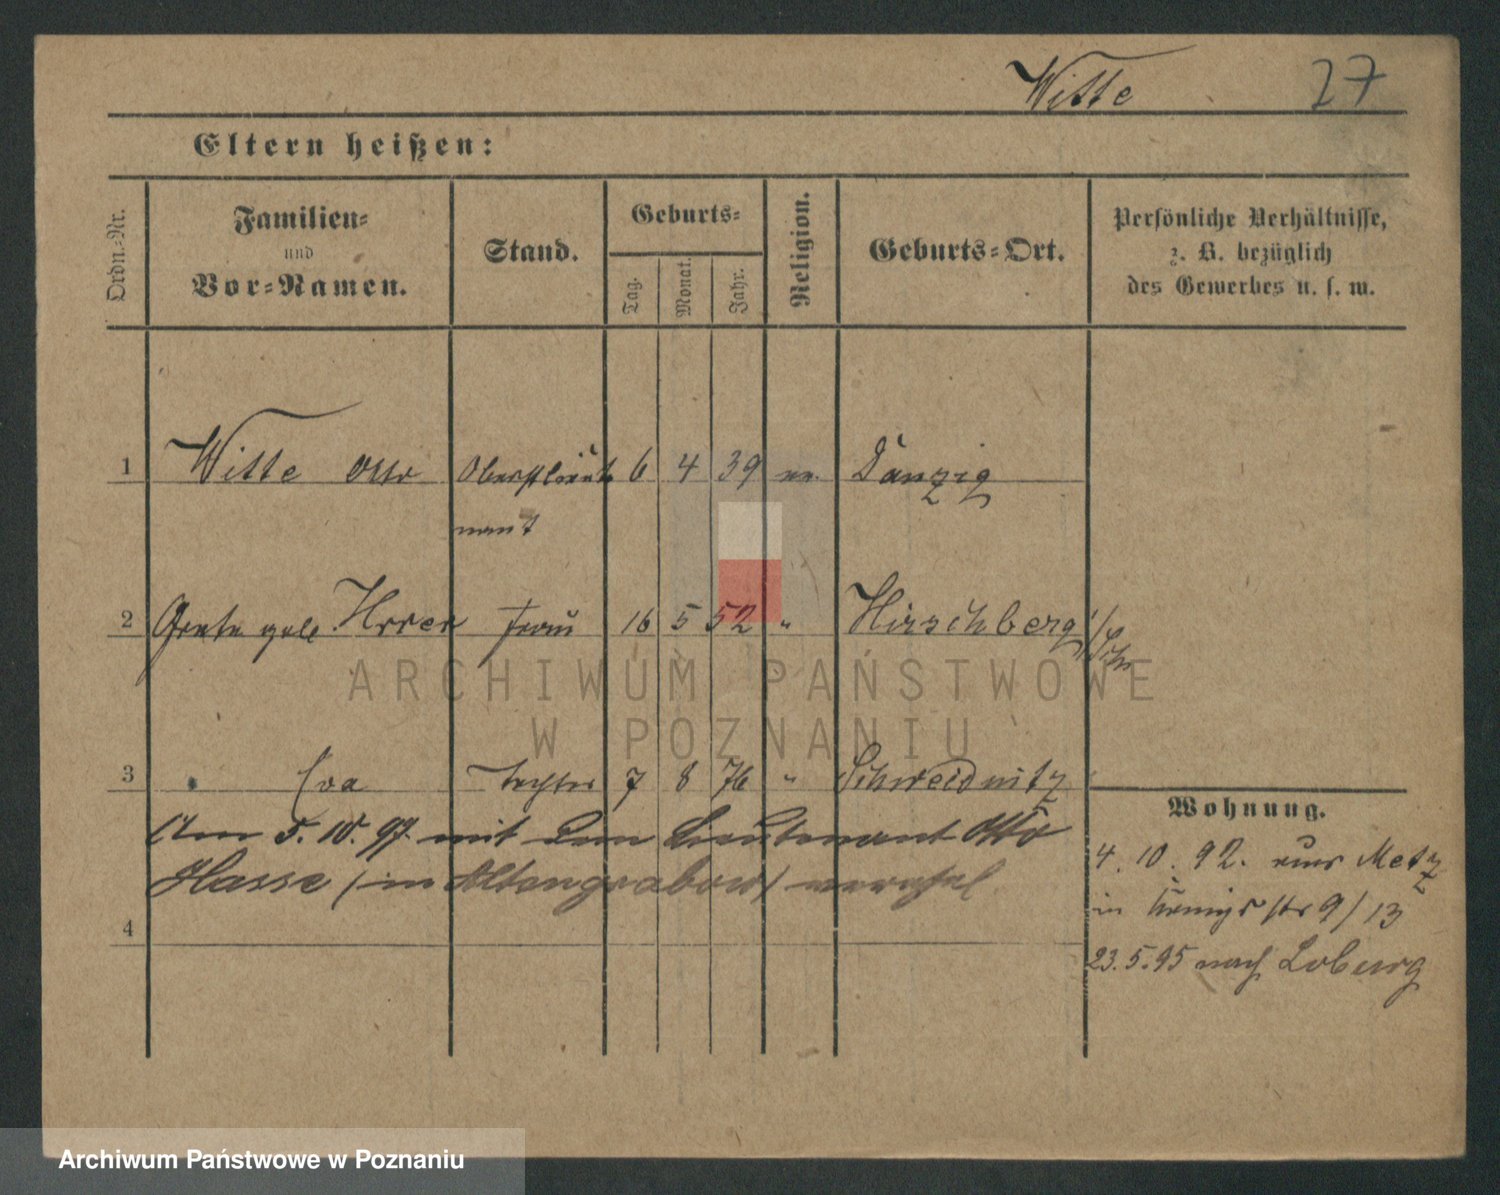 Witte 27
Eltern heißen:
Ordn.-Nr.
Familien-
und
Vor-Namen.
Stand.
Geburts-
Tag.
Monat.
Jahr.
Religion.
Geburts-Ort.
Persönliche Verhältnisse,
z. B. bezüglich
des Gewerbes u. s. w.
1 Witte Otto Oberstlieut 6 4 39 ev. Danzig
nant
2 Grete geb. Frau 16 5 52 " Hirschberg i/Schl
3 Eva Tochter 7 8 76 " Schweidnitz
Am 5. 10. 97. mit dem Lieutenant Otto
Hasse (in Altengrabow)
4
Wohnung.
4. 10. 92. aus Metz
in Königsstr 9/13
23. 5. 95 nach Loburg
ARCHIWUM PAŃSTWOWE
W POZNANIU
Archiwum Państwowe w Poznaniu